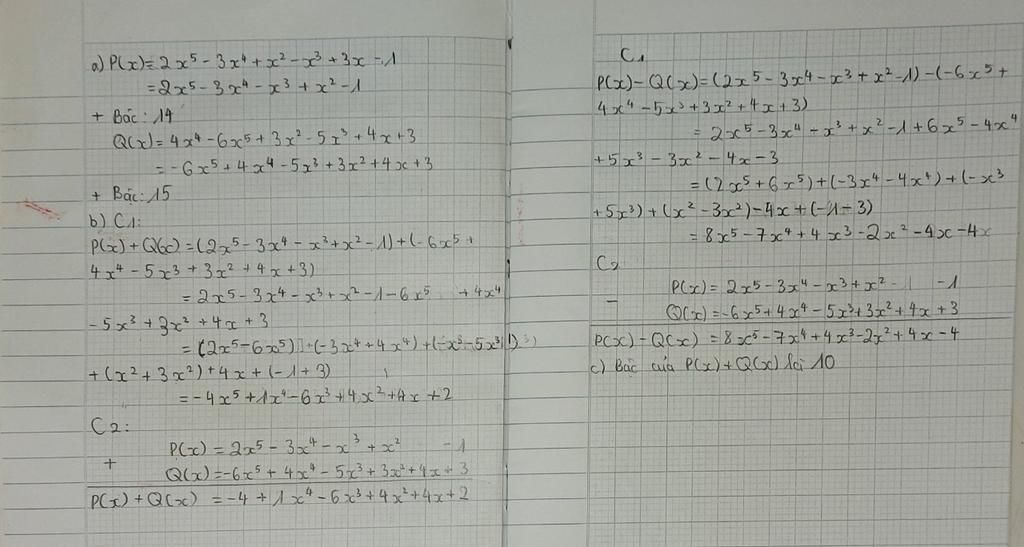 a) P(x) = 2x⁵ - 3x⁴ + x² - x³ + 3x - 1
= 2x⁵ - 3x⁴ - x³ + x² - 1
+ Bậc: 14
Q(x) = 4x⁴ - 6x⁵ + 3x² - 5x³ + 4x + 3
= -6x⁵ + 4x⁴ - 5x³ + 3x² + 4x + 3
+ Bậc: 15
b) C1:
P(x) + Q(x) = (2x⁵ - 3x⁴ - x³ + x² - 1) + (-6x⁵ +
4x⁴ - 5x³ + 3x² + 4x + 3)
= 2x⁵ - 3x⁴ - x³ + x² - 1 - 6x⁵ + 4x⁴
- 5x³ + 3x² + 4x + 3
= (2x⁵ - 6x⁵) + (-3x⁴ + 4x⁴) + (-x³ - 5x³)
+ (x² + 3x²) + 4x + (-1 + 3)
= -4x⁵ + 1x⁴ - 6x³ + 4x² + 4x + 2
C2:
P(x) = 2x⁵ - 3x⁴ - x³ + x² - 1
+
Q(x) = -6x⁵ + 4x⁴ - 5x³ + 3x² + 4x + 3
P(x) + Q(x) = -4 + 1x⁴ - 6x³ + 4x² + 4x + 2
C1
P(x) - Q(x) = (2x⁵ - 3x⁴ - x³ + x² - 1) - (-6x⁵ +
4x⁴ - 5x³ + 3x² + 4x + 3)
= 2x⁵ - 3x⁴ - x³ + x² - 1 + 6x⁵ - 4x⁴
+ 5x³ - 3x² - 4x - 3
= (2x⁵ + 6x⁵) + (-3x⁴ - 4x⁴) + (-x³
+ 5x³) + (x² - 3x²) - 4x + (-1 - 3)
= 8x⁵ - 7x⁴ + 4x³ - 2x² - 4x - 4x
C2
P(x) = 2x⁵ - 3x⁴ - x³ + x² - 1
-
Q(x) = -6x⁵ + 4x⁴ - 5x³ + 3x² + 4x + 3
P(x) - Q(x) = 8x⁵ - 7x⁴ + 4x³ - 2x² + 4x - 4
c) Bậc của P(x) + Q(x) là 10